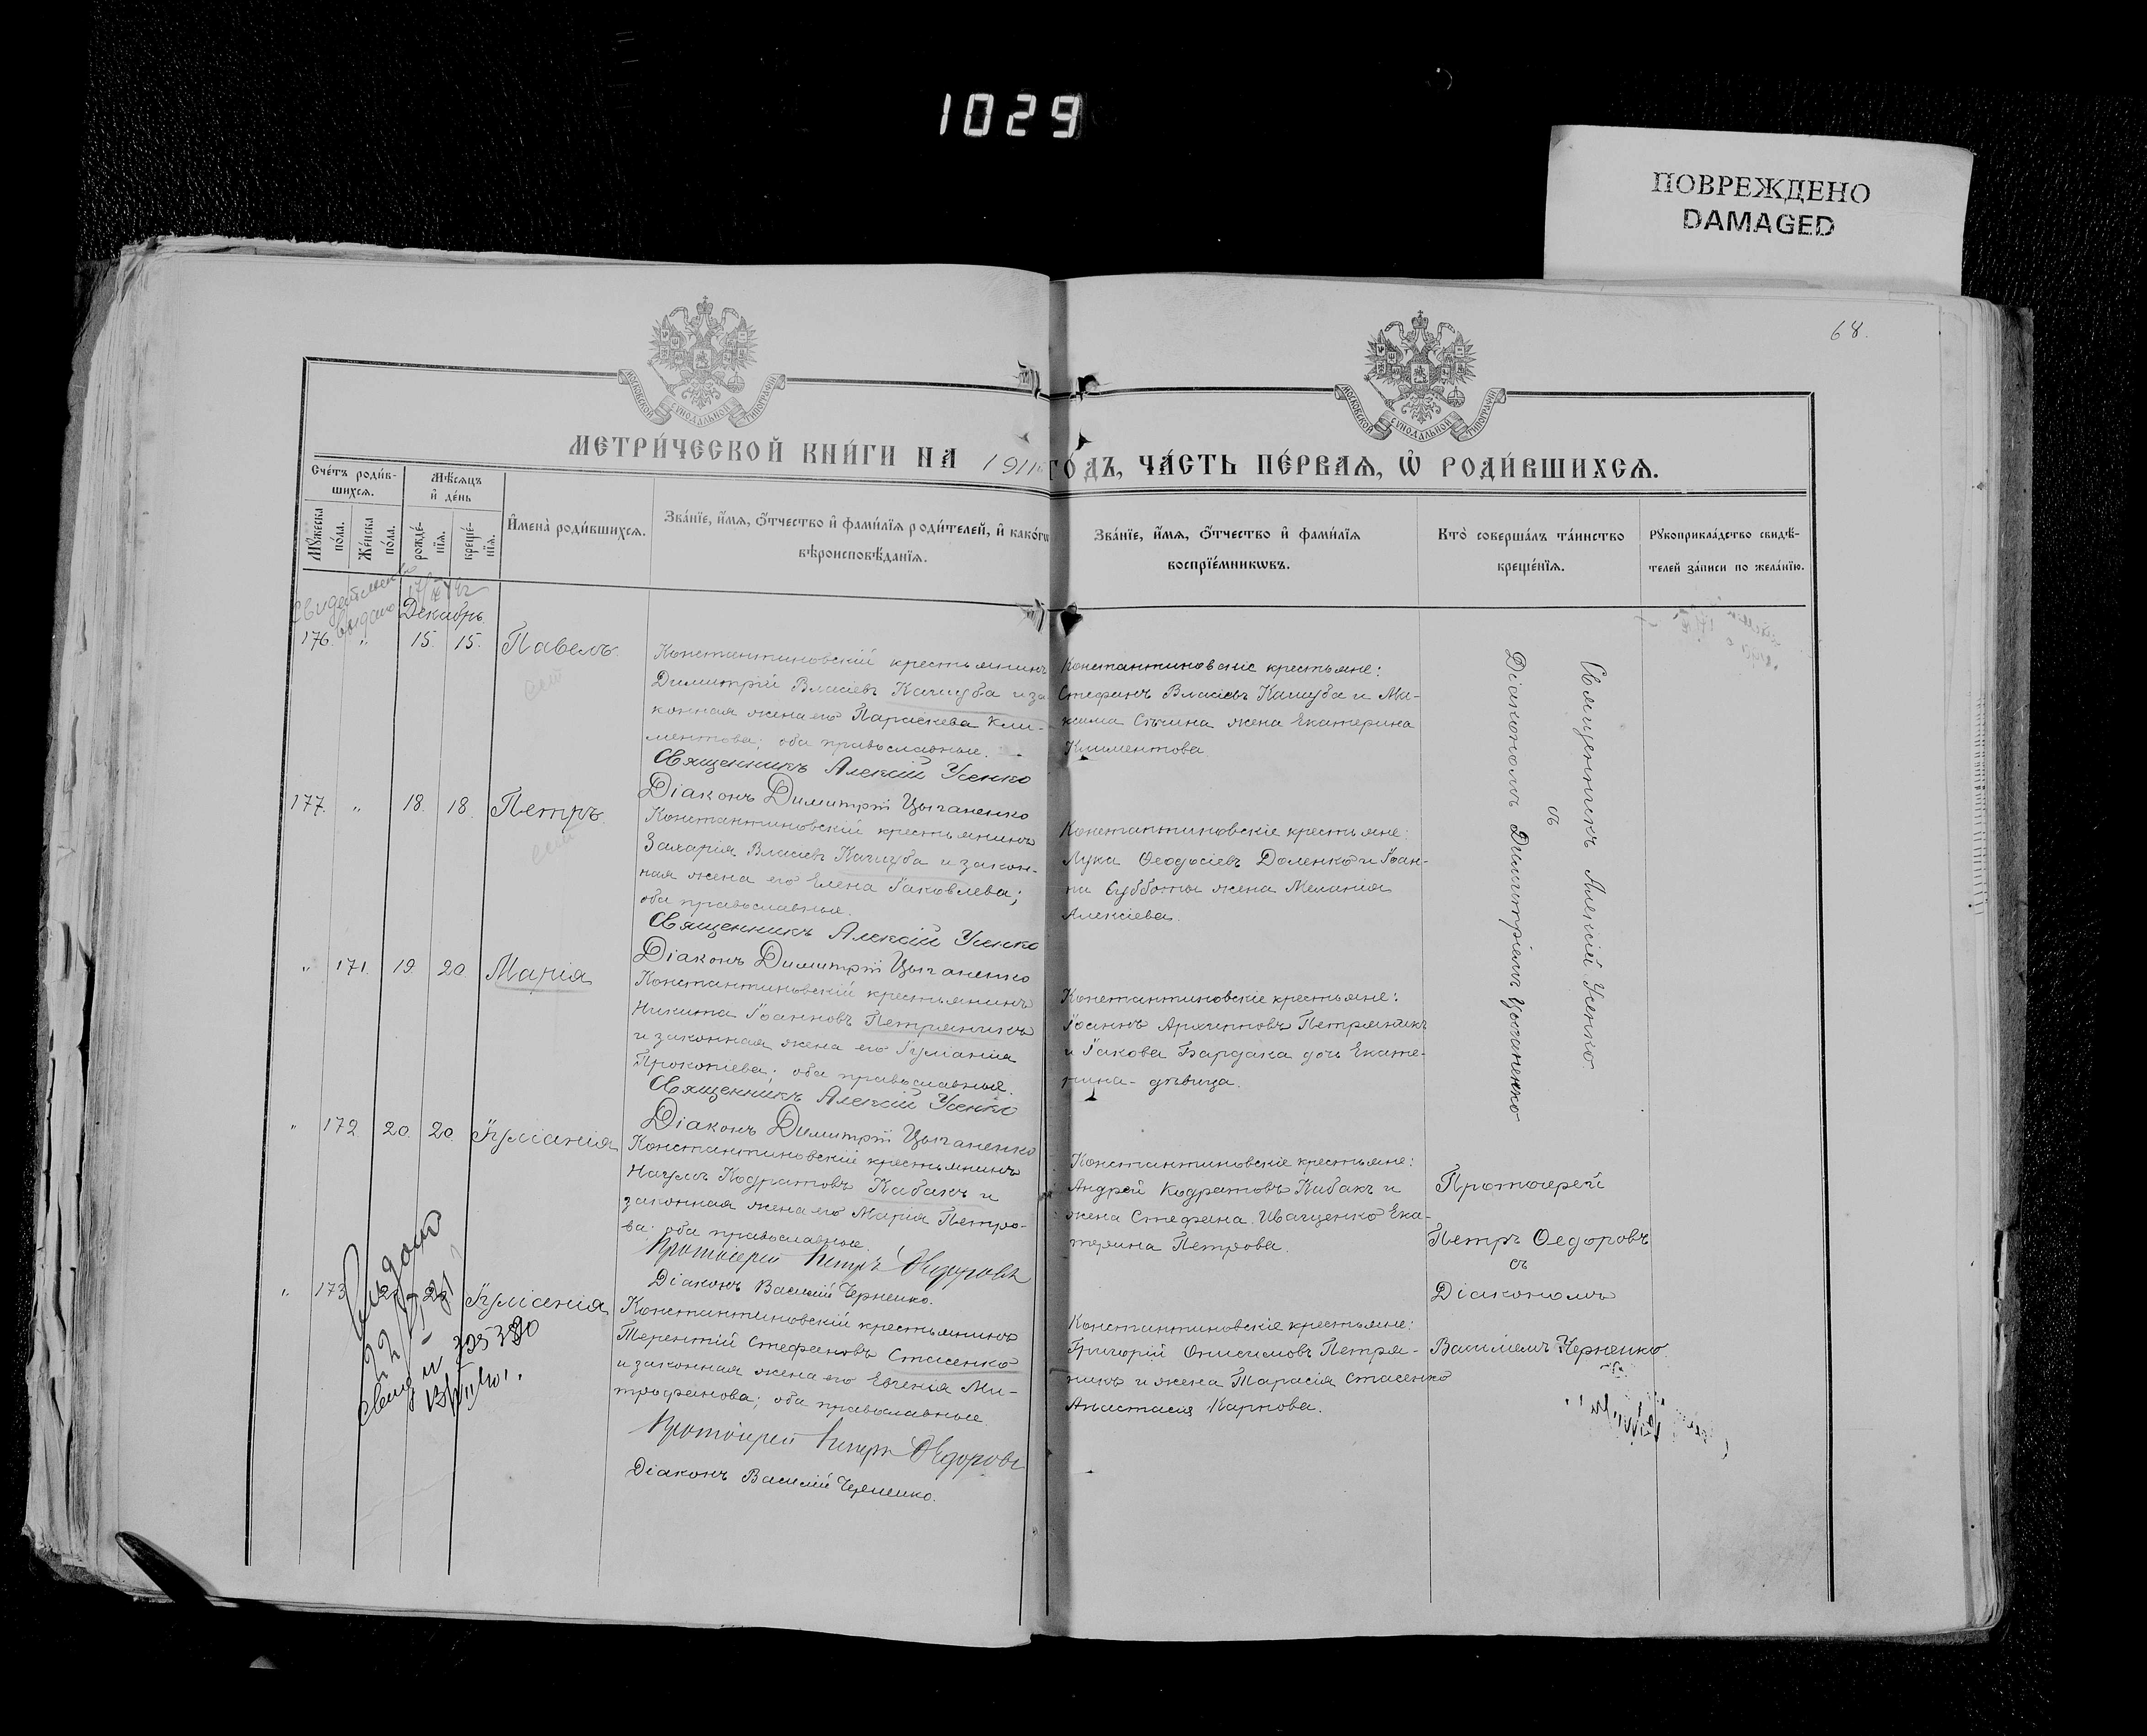 1029
ПОВРЕЖДЕНО
DAMAGED
68.
МОСКОВСКОЙ СѴНОДАЛЬНОЙ ТИПОГРАФІИ
МОСКОВСКОЙ СѴНОДАЛЬНОЙ ТИПОГРАФІИ
МЕТРИ́ЧЕСКОЙ КНИ́ГИ НА 1911 ГО́ДЪ, ЧА́СТЬ ПЕ́РВАѦ, Ѡ҆ РОДИ́ВШИХСѦ.
Сче́тъ роди́в-
шихсѧ.
Мꙋ́жеска
по́ла.
Же́нска
по́ла.
Мѣ́сѧцъ
и҆ де́нь
рожде́-
нїѧ.
креще́-
нїѧ.
И҆мена̀ роди́вшихсѧ.
Зва́нїе, и҆́мѧ, ѻ҆́тчество и҆ фами́лїѧ роди́телей, и҆ како́гѡ
вѣроисповѣ́данїѧ.
Зва́нїе, и҆́мѧ, ѻ҆́тчество и҆ фами́лїѧ
воспрїе́мникѡвъ.
Кто̀ соверша́лъ та́инство
креще́нїѧ.
Рꙋкоприкла́дство свидѣ́-
телей за́писи по жела́нїю.
выдано
Декабрь
176. " 15. 15. Павелъ.
Константиновскій крестьянинъ
Димитрій Власіевъ Качуба и за-
конная жена его Параскева Кли-
ментова; оба православные.
Священникъ Алексій Усенко
Діаконъ Димитрій Цыганенко
Константиновскіе крестьяне:
Стефанъ Власіевъ Качуба и Ма-
ксима Сытина жена Екатерина
Климентова.
Священникъ Алексій Усенко
съ
Діакономъ Димитріемъ Цыганенко
177. " 18. 18. Петръ.
Константиновскій крестьянинъ
Захарія Власіевъ Качуба и закон-
ная жена его Елена Іаковлева;
оба православные.
Священникъ Алексій Усенко
Діаконъ Димитрій Цыганенко
Константиновскіе крестьяне:
Лука Ѳеодосіевъ Доленко и Іоан-
на Субботы жена Меланія
Алексіева.
" 171. 19. 20. Марія
Константиновскій крестьянинъ
Никита Іоанновъ Петряникъ
и законная жена его Іуліанія
Прокопіева; оба православные.
Священникъ Алексій Усенко
Діаконъ Димитрій Цыганенко
Константиновскіе крестьяне:
Іоаннъ Архипповъ Петряникъ
и Іакова Бардака дочь Екате-
рина - дѣвица.
" 172. 20. 20. Іуліанія
Константиновскій крестьянинъ
Наумъ Кодратовъ Кабакъ и
законная жена его Марія Петро-
ва; оба православные.
Протоіерей Петръ Ѳедоровъ
Діаконъ Василій Черненко.
Константиновскіе крестьяне:
Андрей Кодратовъ Кабакъ и
жена Стефана Иващенко Ека-
терина Петрова.
Протоіерей
Петръ Ѳедоровъ
съ
Діакономъ
Василіемъ Черненко.
" 173. Іуліанія
Константиновскій крестьянинъ
Терентій Стефановъ Стасенко
и законная жена его Евгенія Ми-
трофанова; оба православные.
Протоіерей Петръ Ѳедоровъ
Діаконъ Василій Черненко.
Константиновскіе крестьяне:
Григорій Онисимовъ Петря-
никъ и жена Тарасія Стасенко
Анастасія Карпова.
Выдано